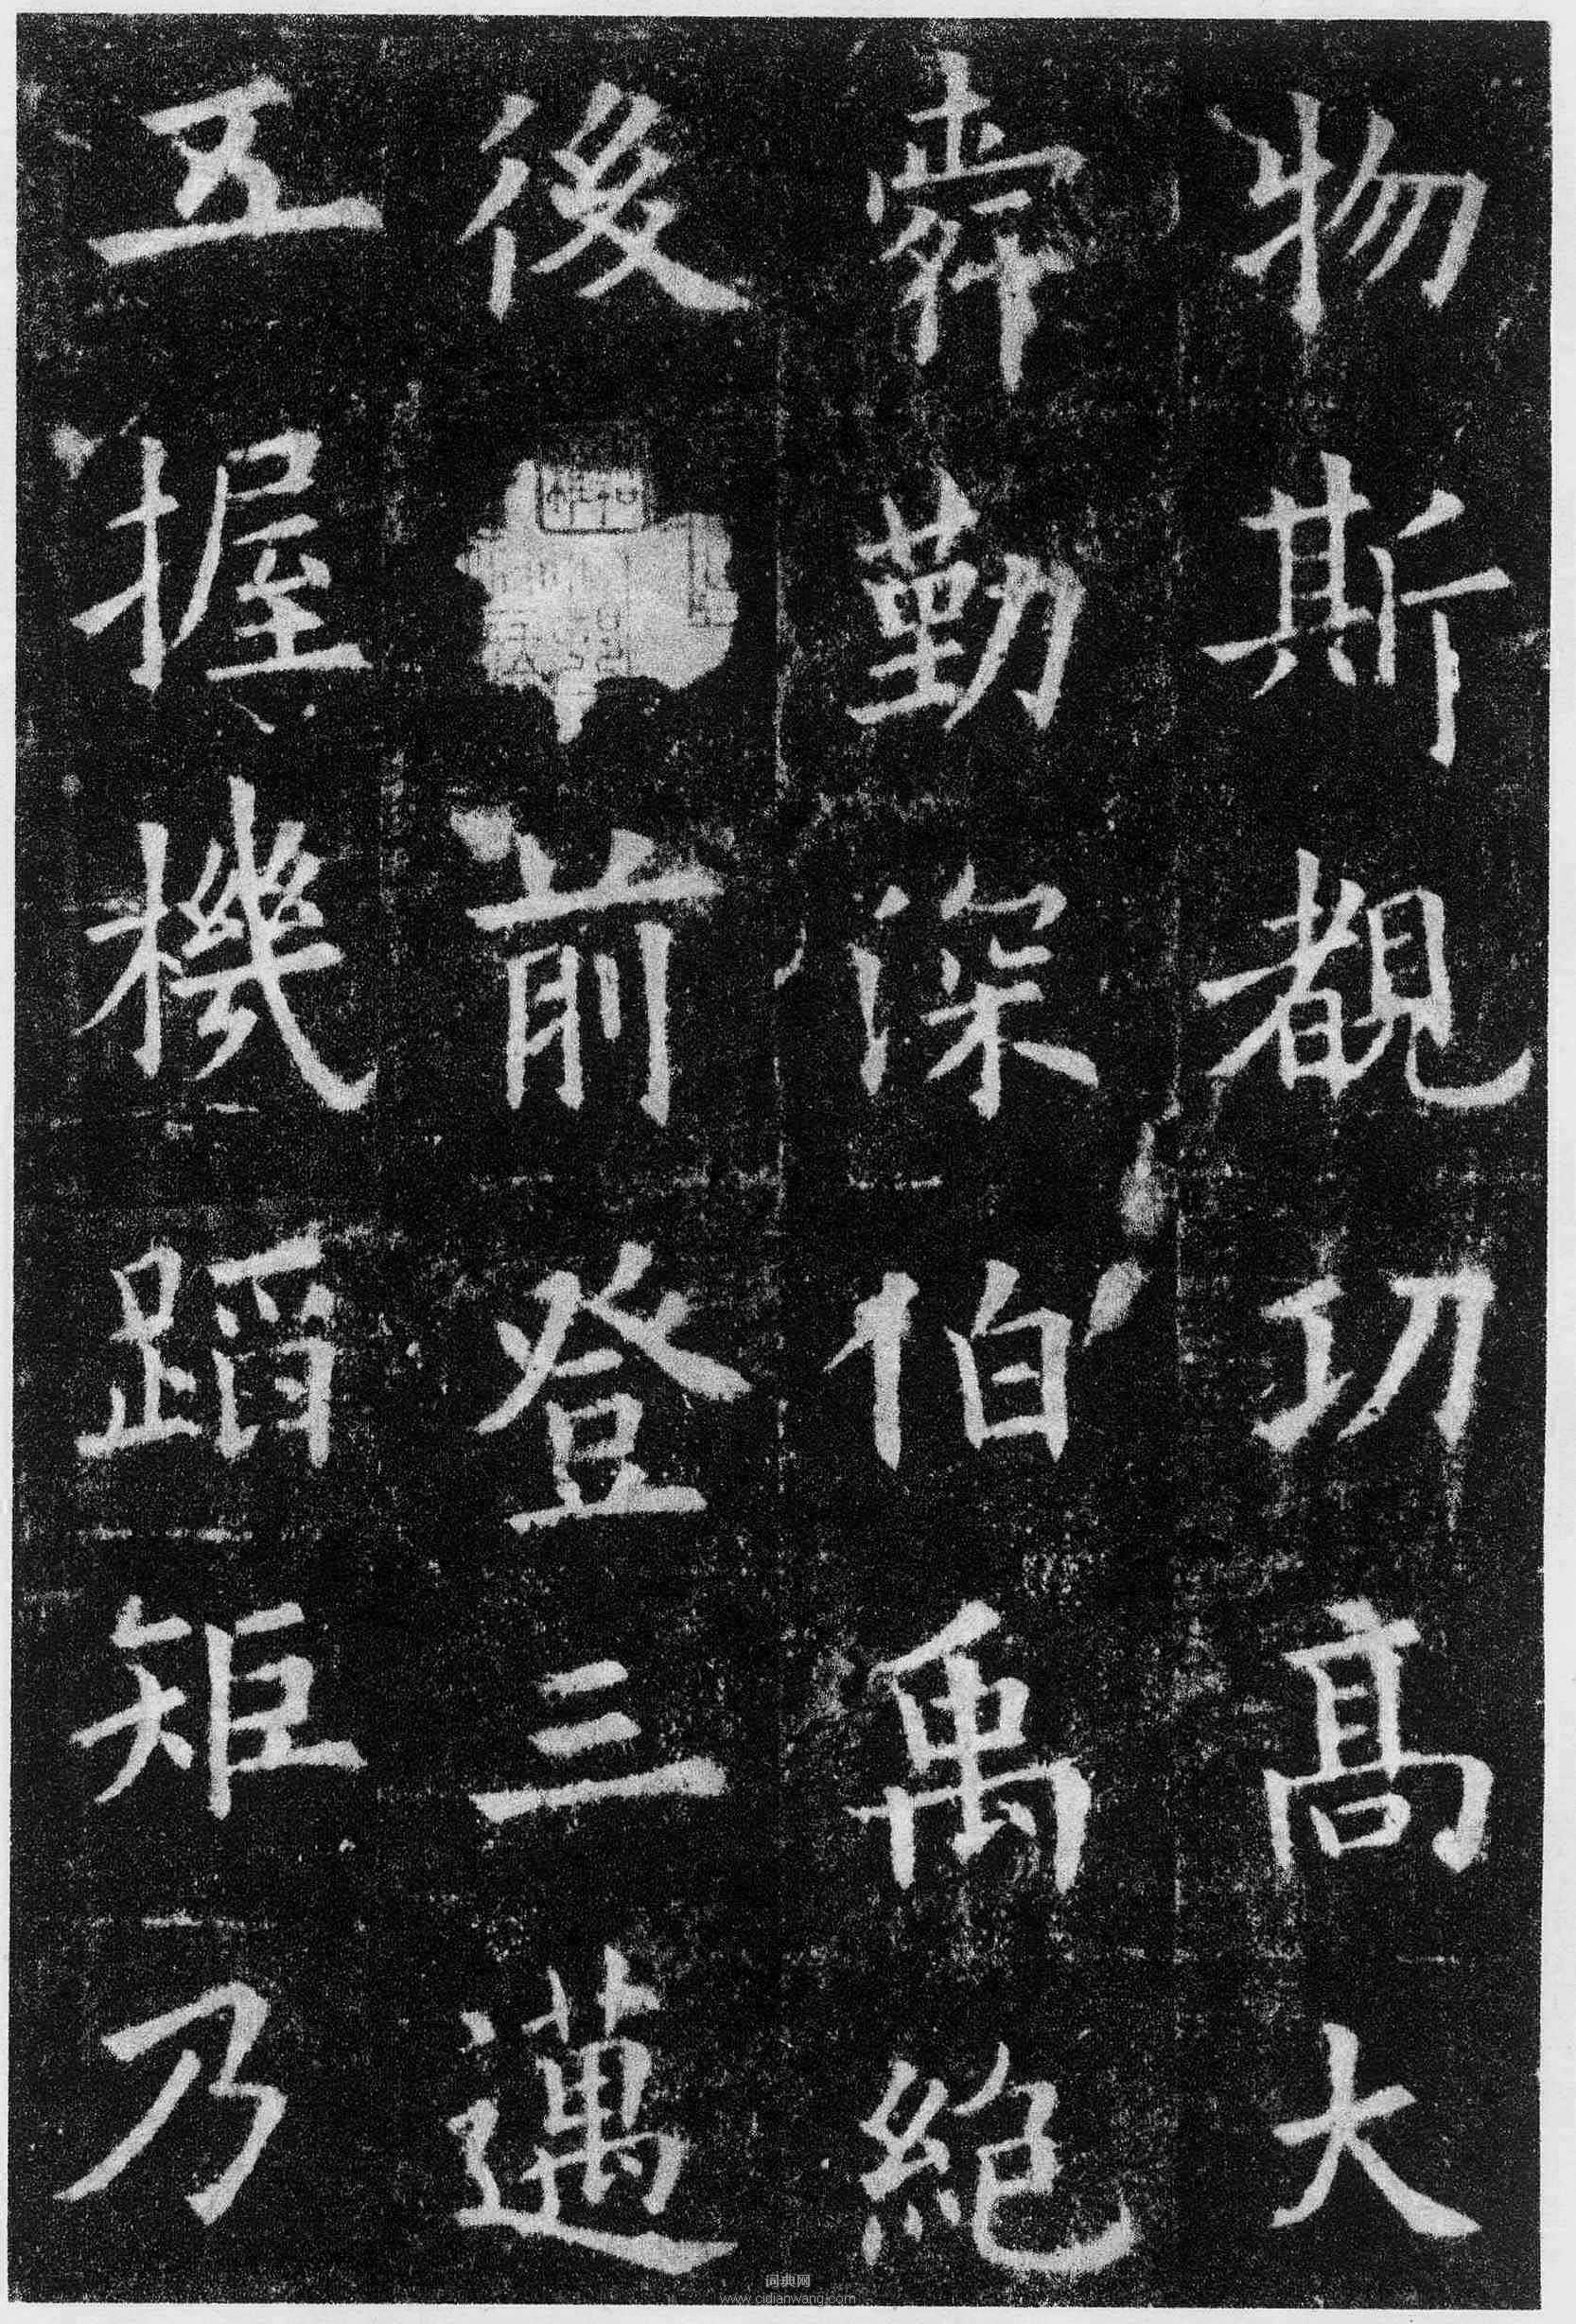 物斯覩功高大
舜勤深伯禹絶
後 前登三邁
五握機蹈矩乃
词典网
www.cidianwang.com